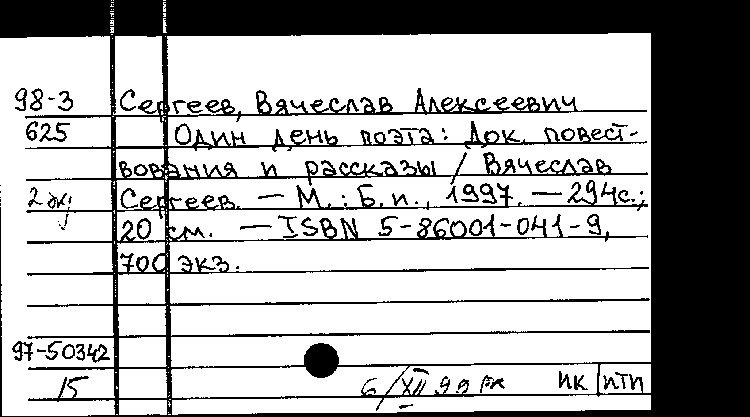 98-3 Сергеев, Вячеслав Алексеевич
625 Один день поэта: Док. повест-
вования и рассказы / Вячеслав
2 экз Сергеев. — М.: Б.и., 1997. — 294с.;
20 см. — ISBN 5-86001-041-9,
700 экз.
97-50342
15 6/XII 99 РК ИК ИТИ